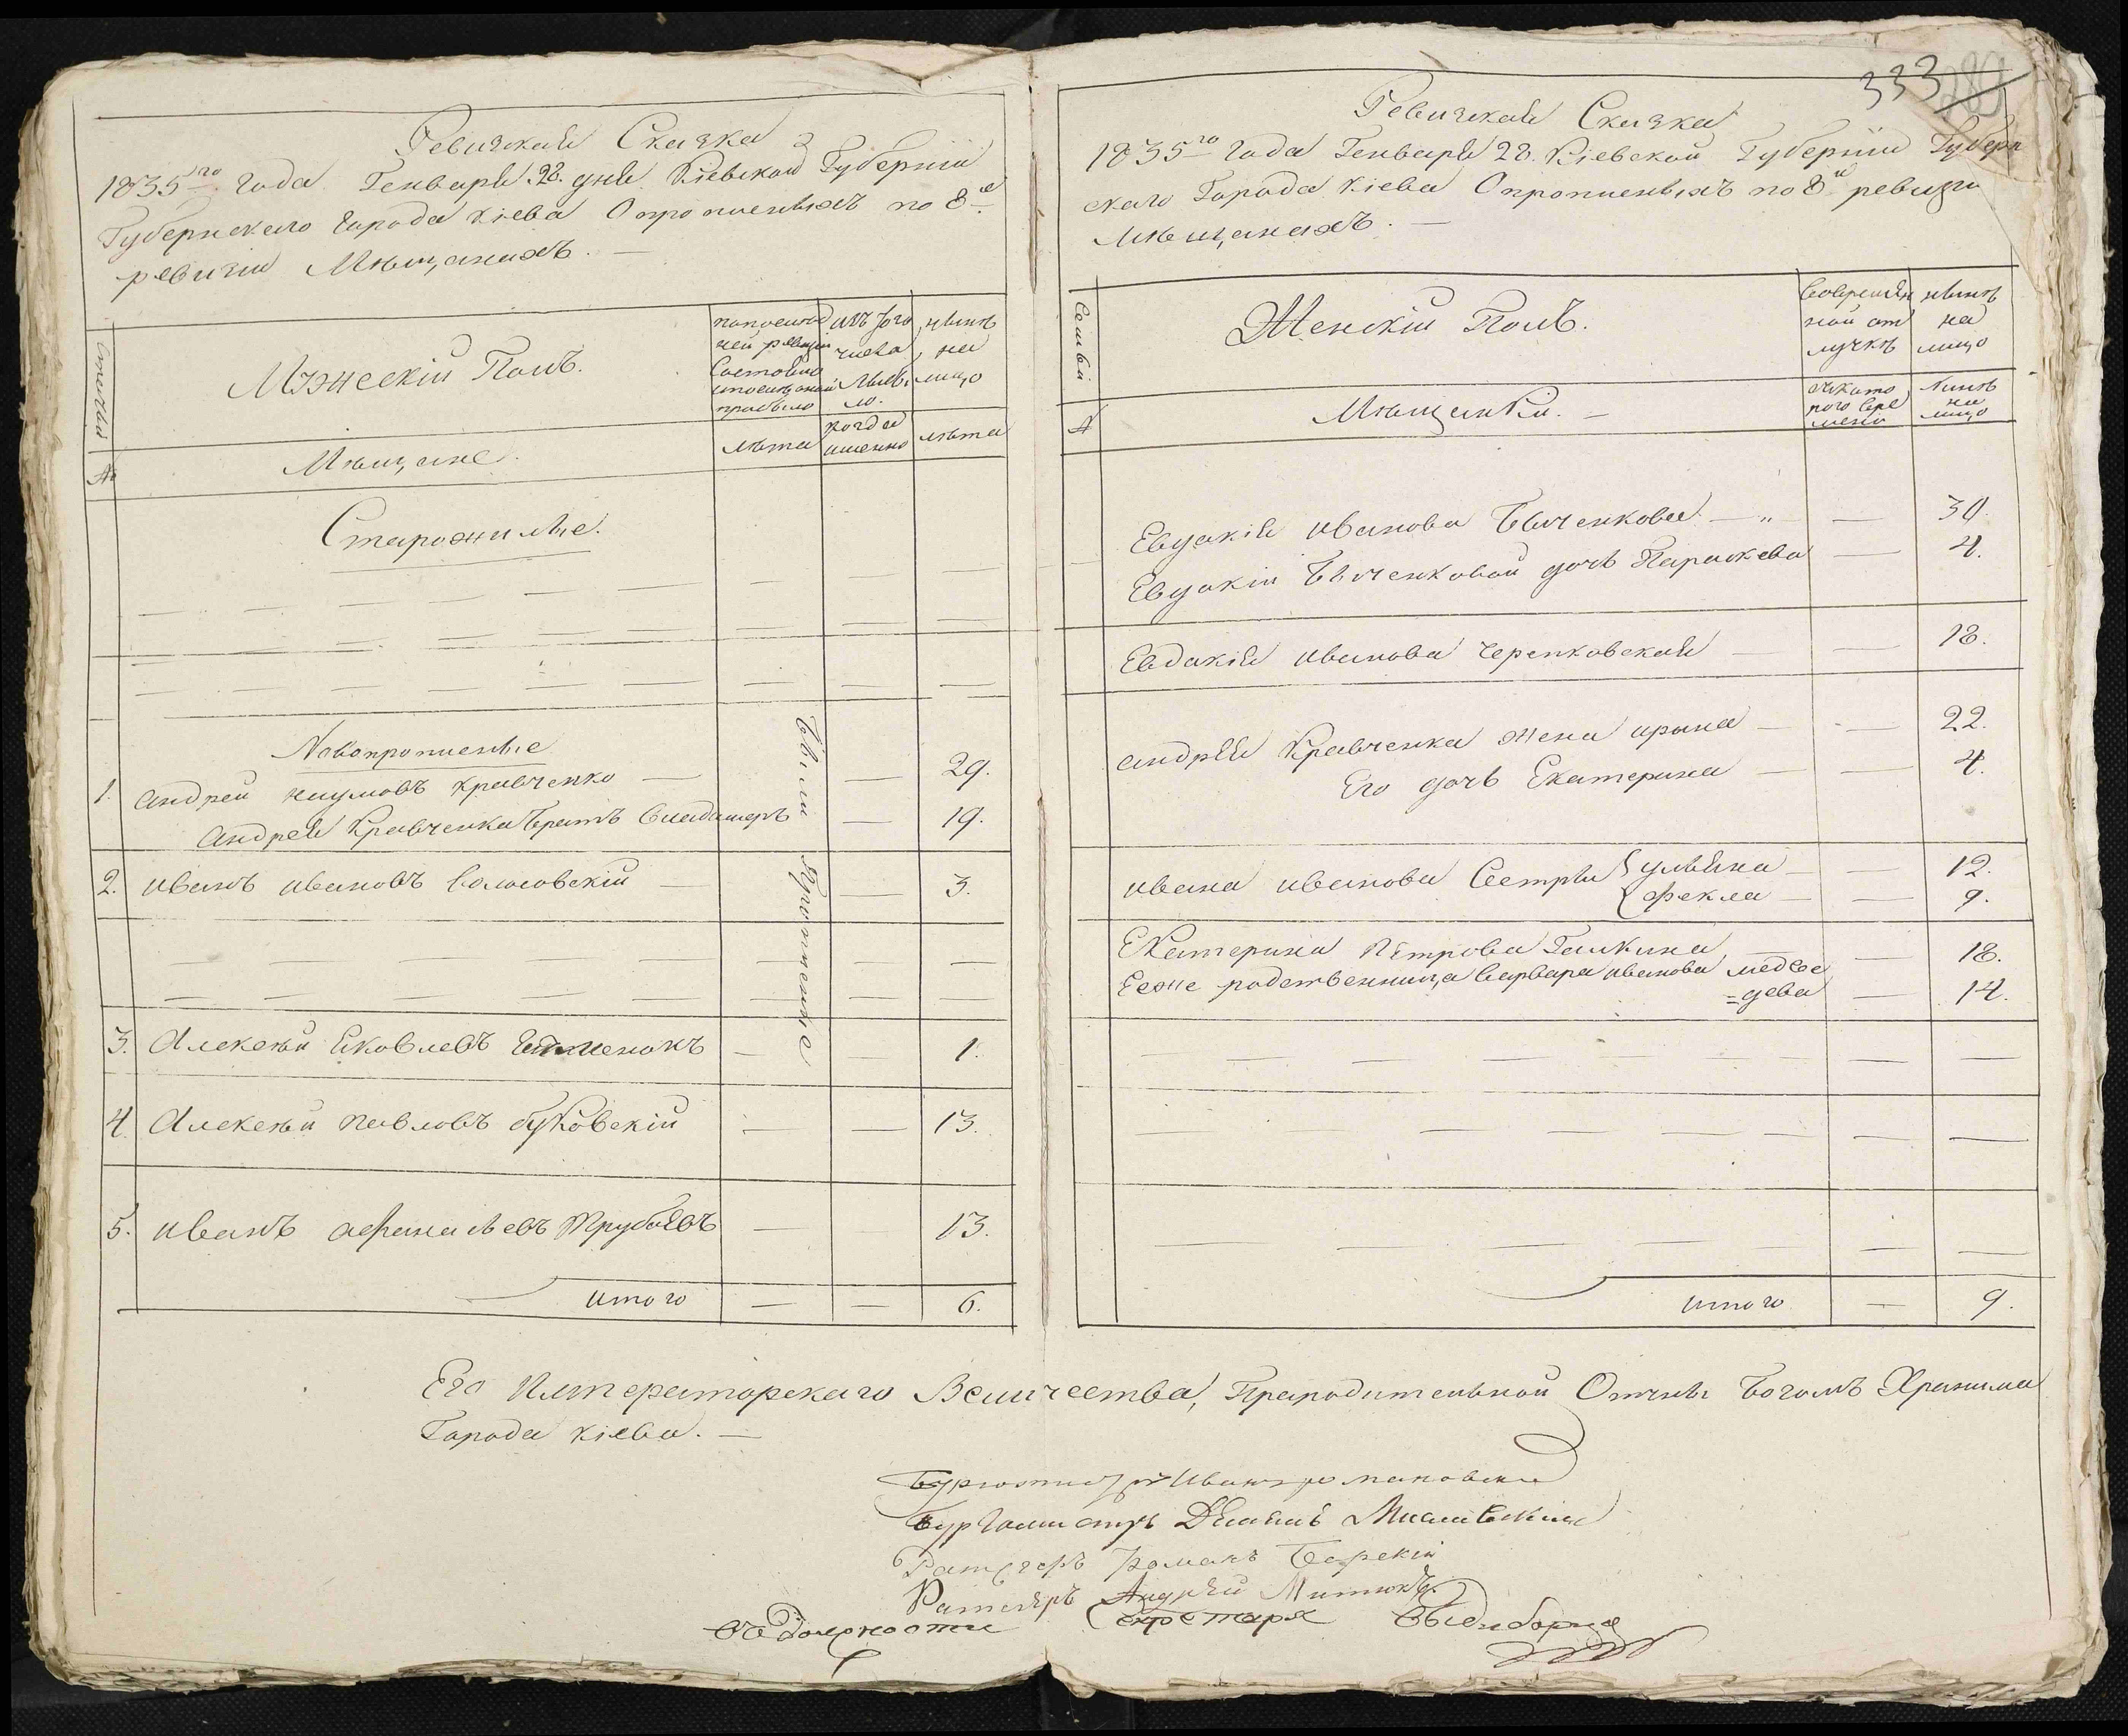 Ревизкая Сказка
1835го Года Генваря 28. дня Кіевской Губерніи
Губернскаго города Кіева О пропис­ныхъ по 8й
ревизіи Мѣщанахъ. —
Семьи
Мужескій Полъ.
по послед
ней ревизіи
Состояло
прибыло
изъ того
числа
выбы
ло.
нынѣ
на
лицо
№
Мѣщане.
лѣта
когда
именно
лѣта
Старожилые.
Новопрописные
Были Пропис­ные
1. андрей наумовъ кравченко — — 29.
андрея Кравченка братъ владимеръ — 19.
2. иванъ ивановъ — — 3.
3. Алексѣй яковлевъ — — 1.
4. Алексѣй павловъ буковскій — — 13.
5. иванъ афанасьевъ Трубаевъ — 13.
итого — — 6.
333
282
Ревизкая Сказка
1835го Года Генваря 28. Кіевской Губерніи Губерн
скаго Города Кіева О пропис­ныхъ по 8й ревизіи
Мѣщанахъ. —
Семьи
Женскій Полъ.
Вовремян
ной от
лучкѣ
нынѣ
на
лицо
№
Мѣщанки. —
съкото
рого вре
мени
нынѣ
на
лицо
Евдакія иванова Быченкова — „ — 30.
Евдакіи Быченковой дочь Параскева — 4.
Евдакія иванова Черепковская — — 18.
андрея Кравченка жена ирина — — 22.
Его дочь Екатерина — — 4.
ивана иванова Сестры { ульяна — — 12.
{ фекла — — 9.
Екатерина Петрова Галкина — — 18.
Еежe родственница варвара иванова медве
=дева — 14.
итого — 9.
Его Императорскаго Величества, Прародительной Отчины Богомъ Хранима
Города Кіева. —
Бургомистръ Иванъ
Бургомистръ
Ратгеръ Романъ Барскій
Ратгеръ Андрей Митюкъ
въ Должности Секретаря